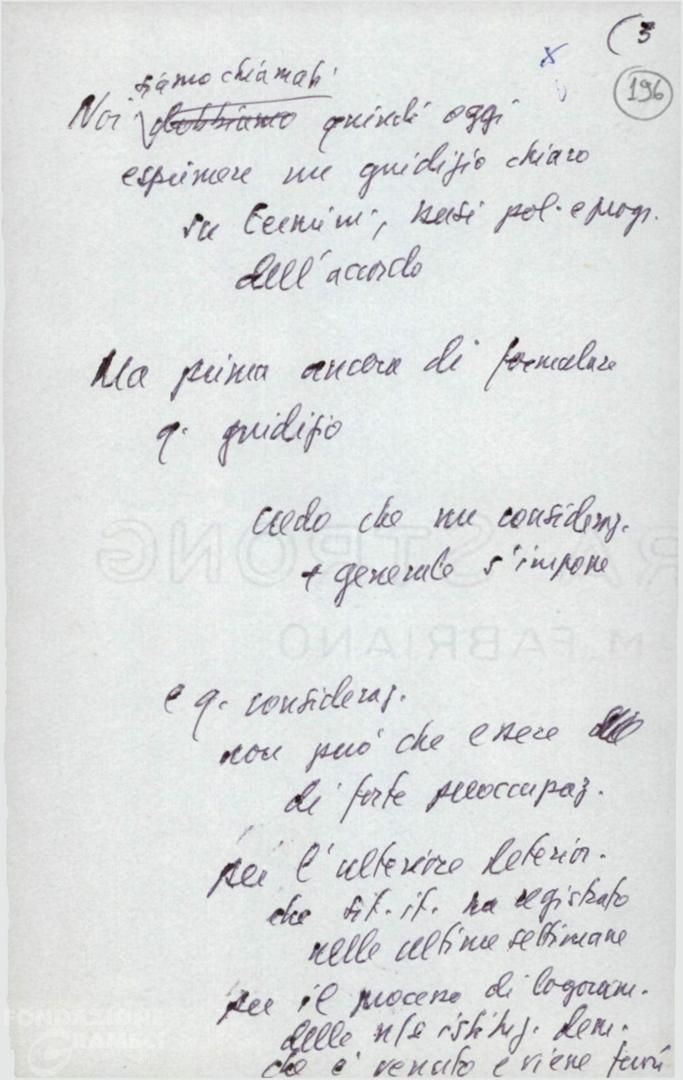 (3
196
siamo chiamati
Noi dobbiamo quindi oggi
esprimere un giudizio chiaro
su termini, basi pol. e progr.
dell'accordo
Ma prima ancora di formulare
q. giudizio
credo che una consideraz.
+ generale s'impone
e q. consideraz.
non può che essere
di forte preoccupaz.
per l'ulteriore deterior.
che sit. it. ha registrato
nelle ultime settimane
per il processo di logoram.
delle istituz. dem.
che è venuto e viene
RA STRONG
M. FABRIANO
FONDAZIONE
GRAMSCI